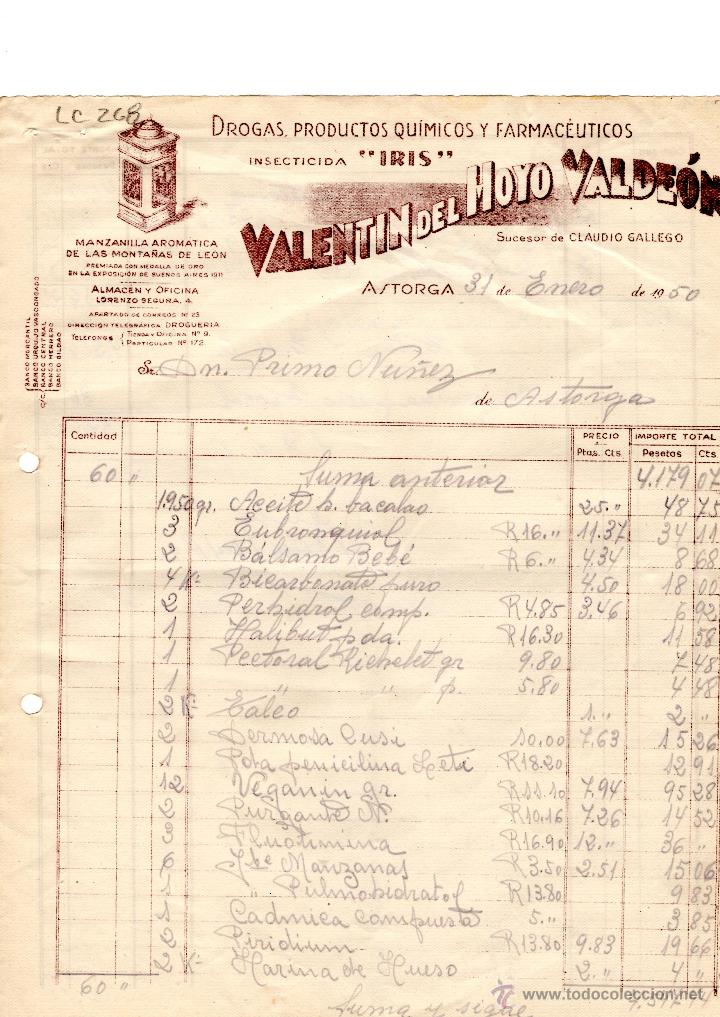 LC 268
DROGAS, PRODUCTOS QUÍMICOS Y FARMACÉUTICOS
INSECTICIDA "IRIS"
VALENTIN DEL HOYO VALDEÓN
Sucesor de CLAUDIO GALLEGO
MANZANILLA AROMATICA
DE LAS MONTAÑAS DE LEON
PREMIADA CON MEDALLA DE ORO
EN LA EXPOSICIÓN DE BUENOS AIRES 1911
ALMACEN Y OFICINA
LORENZO SEGURA, 4.
APARTADO DE CORREOS Nº 23
DIRECCIÓN TELEGRÁFICA DROGUERIA
TELÉFONOS { TIENDA Y OFICINA Nº 9.
PARTICULAR Nº 172.
C/C. BANCO MERCANTIL
BANCO URQUIJO VASCONGADO
BANCO CENTRAL
BANCO HERRERO
BANCO BILBAO
ASTORGA 31 de Enero de 1950
Sr. Dn. Primo Nuñez
de Astorga
Cantidad PRECIO IMPORTE TOTAL
Ptas. Cts Pesetas Cts
60 " Suma anterior 4.179 07
1.950 gr. Aceite h. bacalao 25." 48 75
3 Eubronquiol R16." 11.37 34 11
2 Bálsamo Bebé R6." 4.34 8 68
4 K: Bicarbonato puro 4.50 18 00
2 Perhidrol comp. R4.85 3.46 6 92
1 Halibut pda. R16.30 11 58
1 Pectoral Richelet gr 9.80 7 48
1 " " p. 5.80 4 48
2 K: Talco 1." 2 "
2 Dermosa Cusi 10.00 7.63 15 26
1 penicilina R18.20 12 91
12 Veganin gr. R11.10 7.94 95 28
2 Purgante N. R10.16 7.26 14 52
3 R16.90 12." 36 "
6 Jbe Manzanas R3.50 2.51 15 06
1 " Pulmohidratol R13.80 9 83
1 Cadmica compuesta 5." 3 85
2 Piridium R13.80 9.83 19 66
2 K: Harina de Hueso 2." 4 "
60 "
Suma y sigue
www.todocoleccion.net